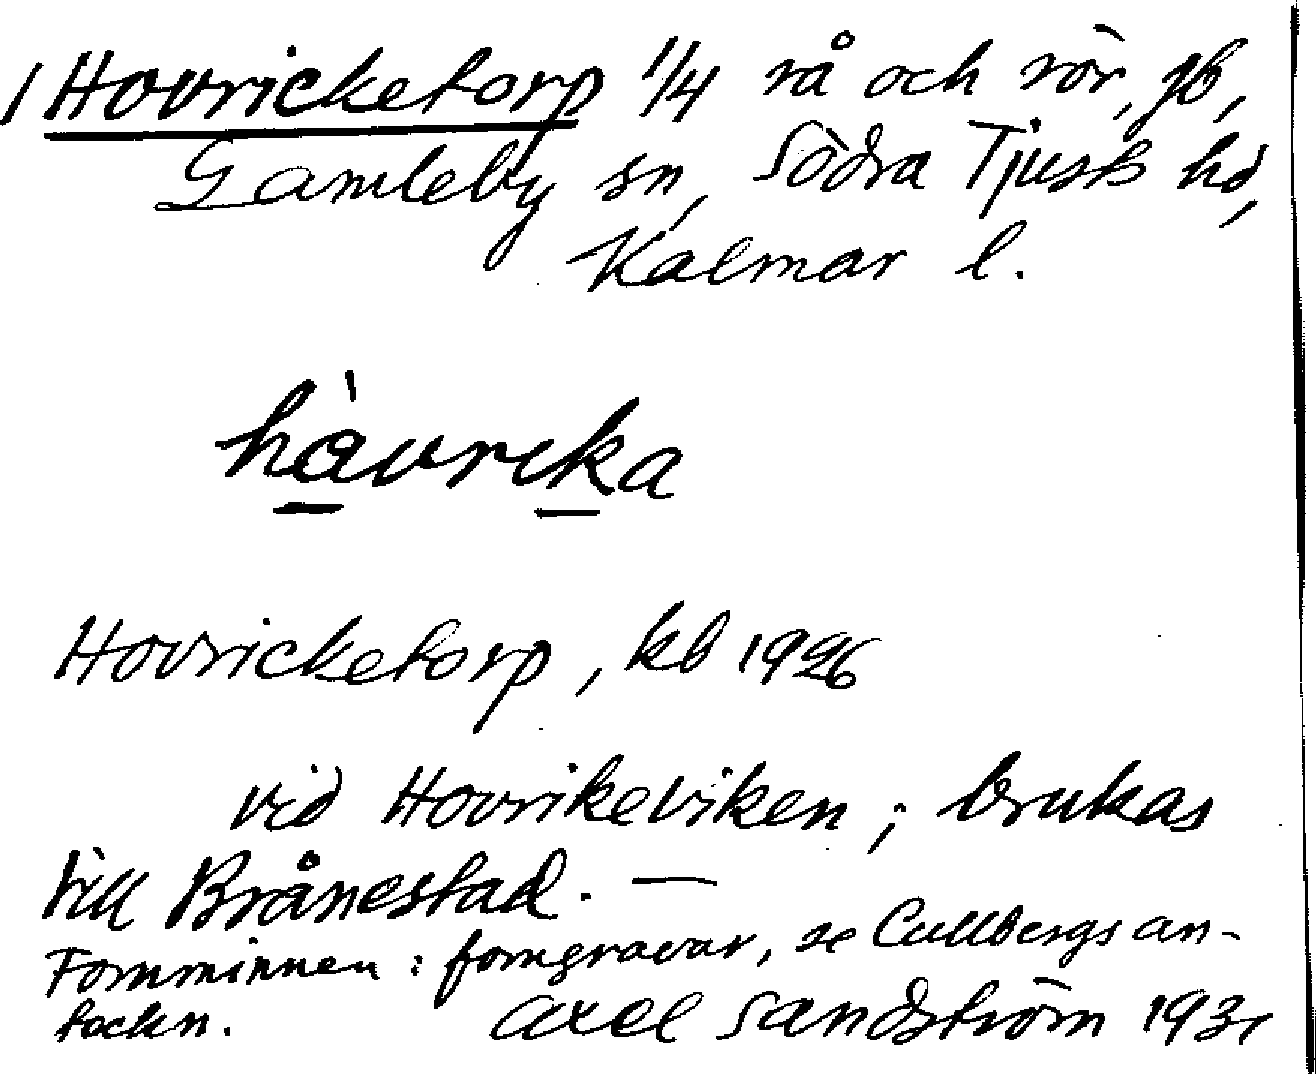 / Hovricketorp 1/4 rå och rör, jb,
Gamleby sn, Södra Tjusts hd,
Kalmar l.
hàvrika
Hovricketorp, kb 1926
vid Hovrikeviken; brukas
till Brånestad. —
Fornminnen: forngravar, se Cullbergs an-
teckn. Axel Sandström 1931